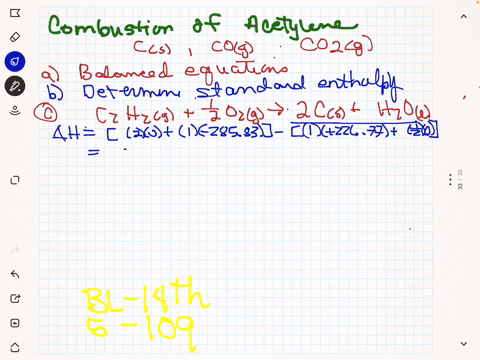 Combustion of Acetylene
C(s), CO(g) : CO2(g)
a) Balanced equations
b) Determine standard enthalpy
C) C2H2(g) + 1/2 O2(g) → 2C(s) + H2O(l)
ΔH = [(2)(0) + (1)(-285.83)] - [(1)(+226.77) + (1/2)(0)]
=
BL-14th
5-109